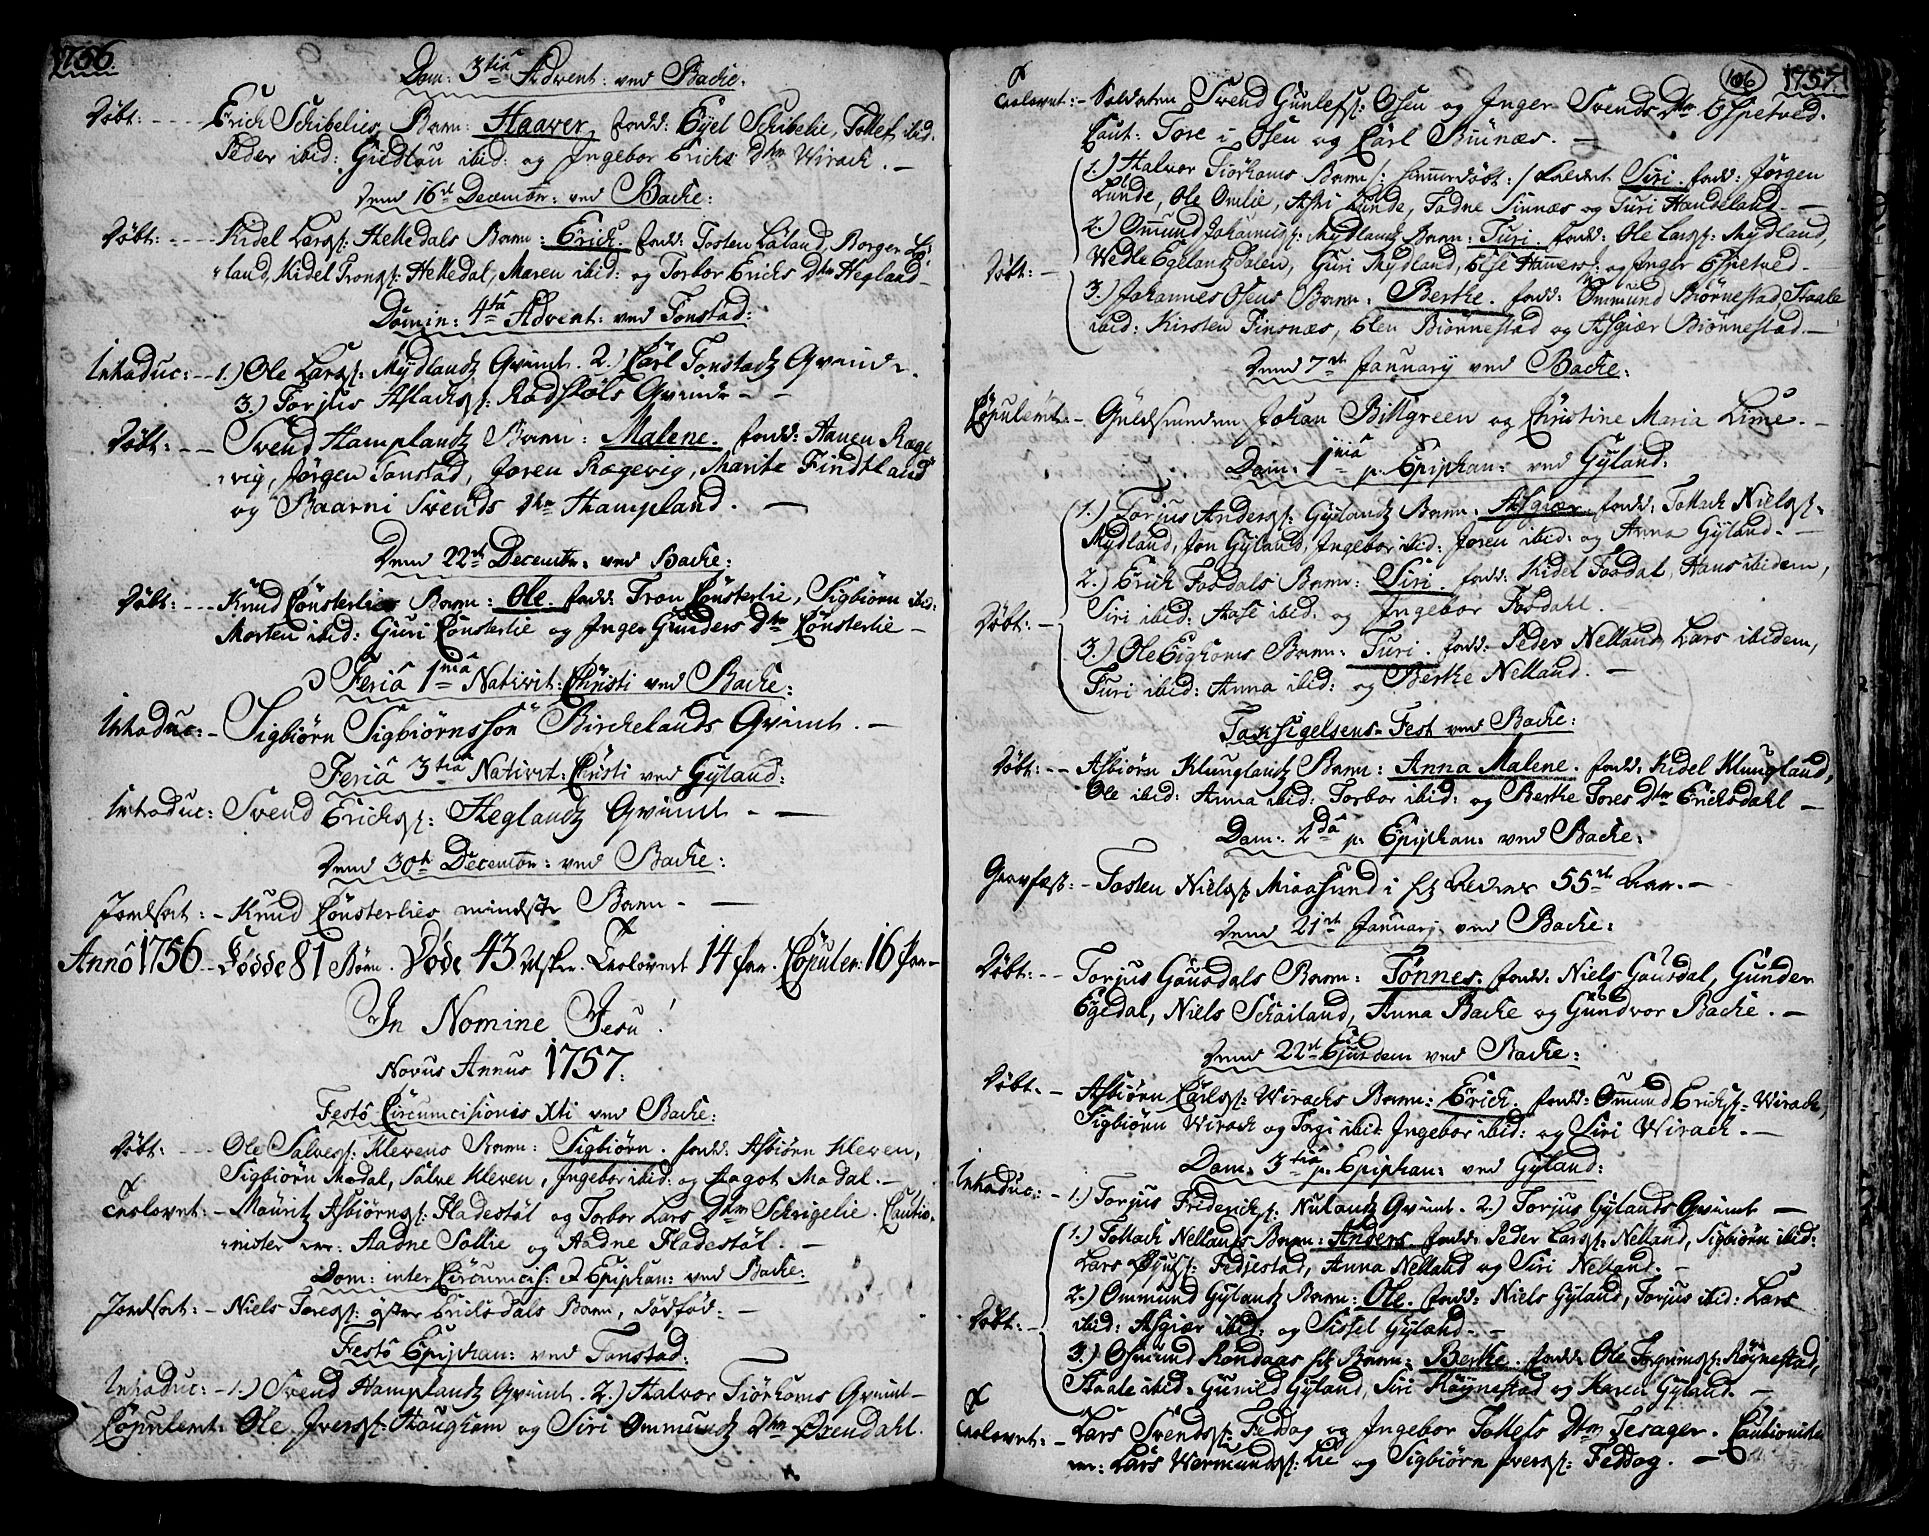 1756.
Dom: 3tia Advent: ved Backe.
Døbt: Erich Schibelies Barn: Haaver. fadd: Eyel Schibelie, Tollef ibid.
Peder ibid: Giedlou ibid: og Ingebor Erichs Dtr Wirack. —
Dend 16de Decembr: ved Backe:
Døbt: Kidel Larss: Helledals Barn: Erich. fadd: Tosten Løland, Borger Lø-
land, Kidel Tronss: Helledal, Maren ibid: og Torbor Erichs Dtr Hegland —
Domin: 4ta Advent: ved Tonstad:
Introduc: — 1.) Ole Larss: Mydlands Qvinde. 2.) Carl Tonstads Qvinde.
3.) Torjus Aslachss: Rødstøls Qvinde —
Døbt: Svend Hamplands Barn: Malene. fadd: Haaen Ræge-
vig, Jørgen Tonstad, Joren Rægevig, Marite Findtland
og Baarni Svends Dtr Hampland. —
Dend 22de Decembr: ved Backe:
Døbt: Knud Cønsterlies Barn: Ole. fadd: Tron Cønsterlie, Sigbiørn ibid:
Morten ibid: Guri Cønsterlie og Inger Gunders Dtr Cønsterlie —
Feria 1ma Nativit: Christi ved Backe:
Introduc: — Sigbiørn Sigbiørnssøn Birchelands Qvinde. —
Feria 3tia Nativit: Christi ved Gyland:
Introduc: Svend Erichss: Heglands Qvinde —
Dend 30te Decembr: ved Backe:
Jordfæst: — Knud Cønsterlies mindste Barn. —
Anno 1756 — Fødde 81 Børn. Døde 43 Msker. Trolovet 14 Par. Copuler: 16 Par —
In Nomine Jesu!
Novus Annus 1757.
Festo Circumcisionis Xti ved Backe:
Døbt: Ole Salvess: Klevens Barn: Sigbiørn. fadd: Asbiørn Kleven,
Sigbiørn Modal, Salve Kleven, Ingebor ibid: og Aagot Modal. —
Trolovet: — Mouritz Asbiørnss: Fladestøl og Torbor Lars Dtr Schrigelie. Cautio-
nister ere: Aadne Sollie og Aadne Fladestøl. —
Dom: inter Circumcis: et Epiphan: ved Backe:
Jordfæst: — Niels Toress: øster Erichsdals Barn, dødfød. —
Festo Epiphan: ved Tonstad:
Introduc: — 1.) Svend Hamplands Qvinde. 2.) Halvor Fiørhoms Qvinde —
Copuleret: Ole Iverss: Houghom og Siri Ommunds Dtr Øxendahl.
106 1757.
Trolovet: — Soldaten Svend Gunlefs: Osen og Inger Svends Dtr Espetved.
Caut: Tore i Osen og Carl Buunæs. —
1.) Halvor Fiørhoms Barn /: hiemmedøbt :/ kaldet Siri. fadd: Jørgen
Lunde, Ole Omlie, Astri Lunde, Tadne Sinnæs og Turi Handeland. —
2.) Ommund Johanniss: Mydlands Barn: Turi. fadd: Ole Larss: Mydland,
Døbt: — Wedle Egelandsdalen, Guri Mydland, Else Hauers: og Inger Espetved —
3.) Johannes Osens Barn: Berthe. fadd: Ommund Biørnestad Staale
ibid: Kirsten Finsnæs, Elen Biønnestad og Asgiær Biønnestad. —
Dend 7de January ved Backe:
Copuleret — Guldsmeden Johan Billgreen og Christine Maria Lime. —
Dom: 1ma p. Epiphan: ved Gyland:
1.) Torjus Anderss: Gylands Barn: Asgiær. fadd: Tollach Nielss:
Mydland, Jon Gyland, Ingebor ibid: Joren ibid: og Anna Gyland. —
2.) Erich Fosdals Barn: Siri. fadd: Kidel Fosdal, Hans ibidem,
Døbt: — Siri ibid: Aase ibid: og Ingebor Fosdahl. —
3.) Ole Eighoms Barn: Turi. fadd: Peder Nelland Lars ibidem,
Turi ibid: Anna ibid: og Berthe Nelland. —
Taksigelsens-Fest ved Backe:
Døbt: — Asbiørn Klunglands Barn: Anna Malene. fadd: Kidel Klungland,
Ole ibid: Anna ibid: Torbor ibid: og Berthe Tores Dtr Erichsdahl —
Dom: 2da p. Epiphan: ved Backe:
Gravfæst: — Tosten Nielss: Miaasund i sit Alders 55de Aar. —
Dend 21de Januarj ved Backe:
Døbt: — Torjus Gousdals Barn: Tønnes. fadd: Niels Gousdal, Gunder
Egedal, Niels Schailand, Anna Backe og Gundvor Backe. —
Dend 22de Ejusdem ved Backe:
Døbt. — Asbiørn Carlss: Wirachs Barn: Erich. fadd: Ommund Erichss: Wirach,
Sigbiørn Wirach og Torgi ibid: Ingebor ibid: og Siri Wirach. —
Dom: 3tia p. Epiphan: ved Gyland:
Introduc: — 1.) Torjus Friderichss: Nulands Qvinde. 2.) Torjus Gylands Qvinde —
1.) Tollach Nellands Barn: Anders. fadd: Peder Larss: Nelland, Sigbiørn ibid:
Lars Fedjestad, Anna Nelland og Siri Nelland. —
2.) Ommund Gylands Barn: Ole. fadd: Niels Gyland, Torjus ibid: Lars
Døbt: — ibid: Asgiær ibid: og Sissel Gyland. —
3.) Osmund Røndaas sit Barn: Berthe. fadd: Ole Torgrimss: Røynestad,
Staale ibid: Gunild Gyland, Siri Røynestad og Karen Gyland. —
Trolovet: — Lars Svendss: Feddog og Ingebor Tollefs Dtr Tesager. Cautionister
ere: Lars Wermundss: Lie og Sigbiørn Iverss: Feddog. —